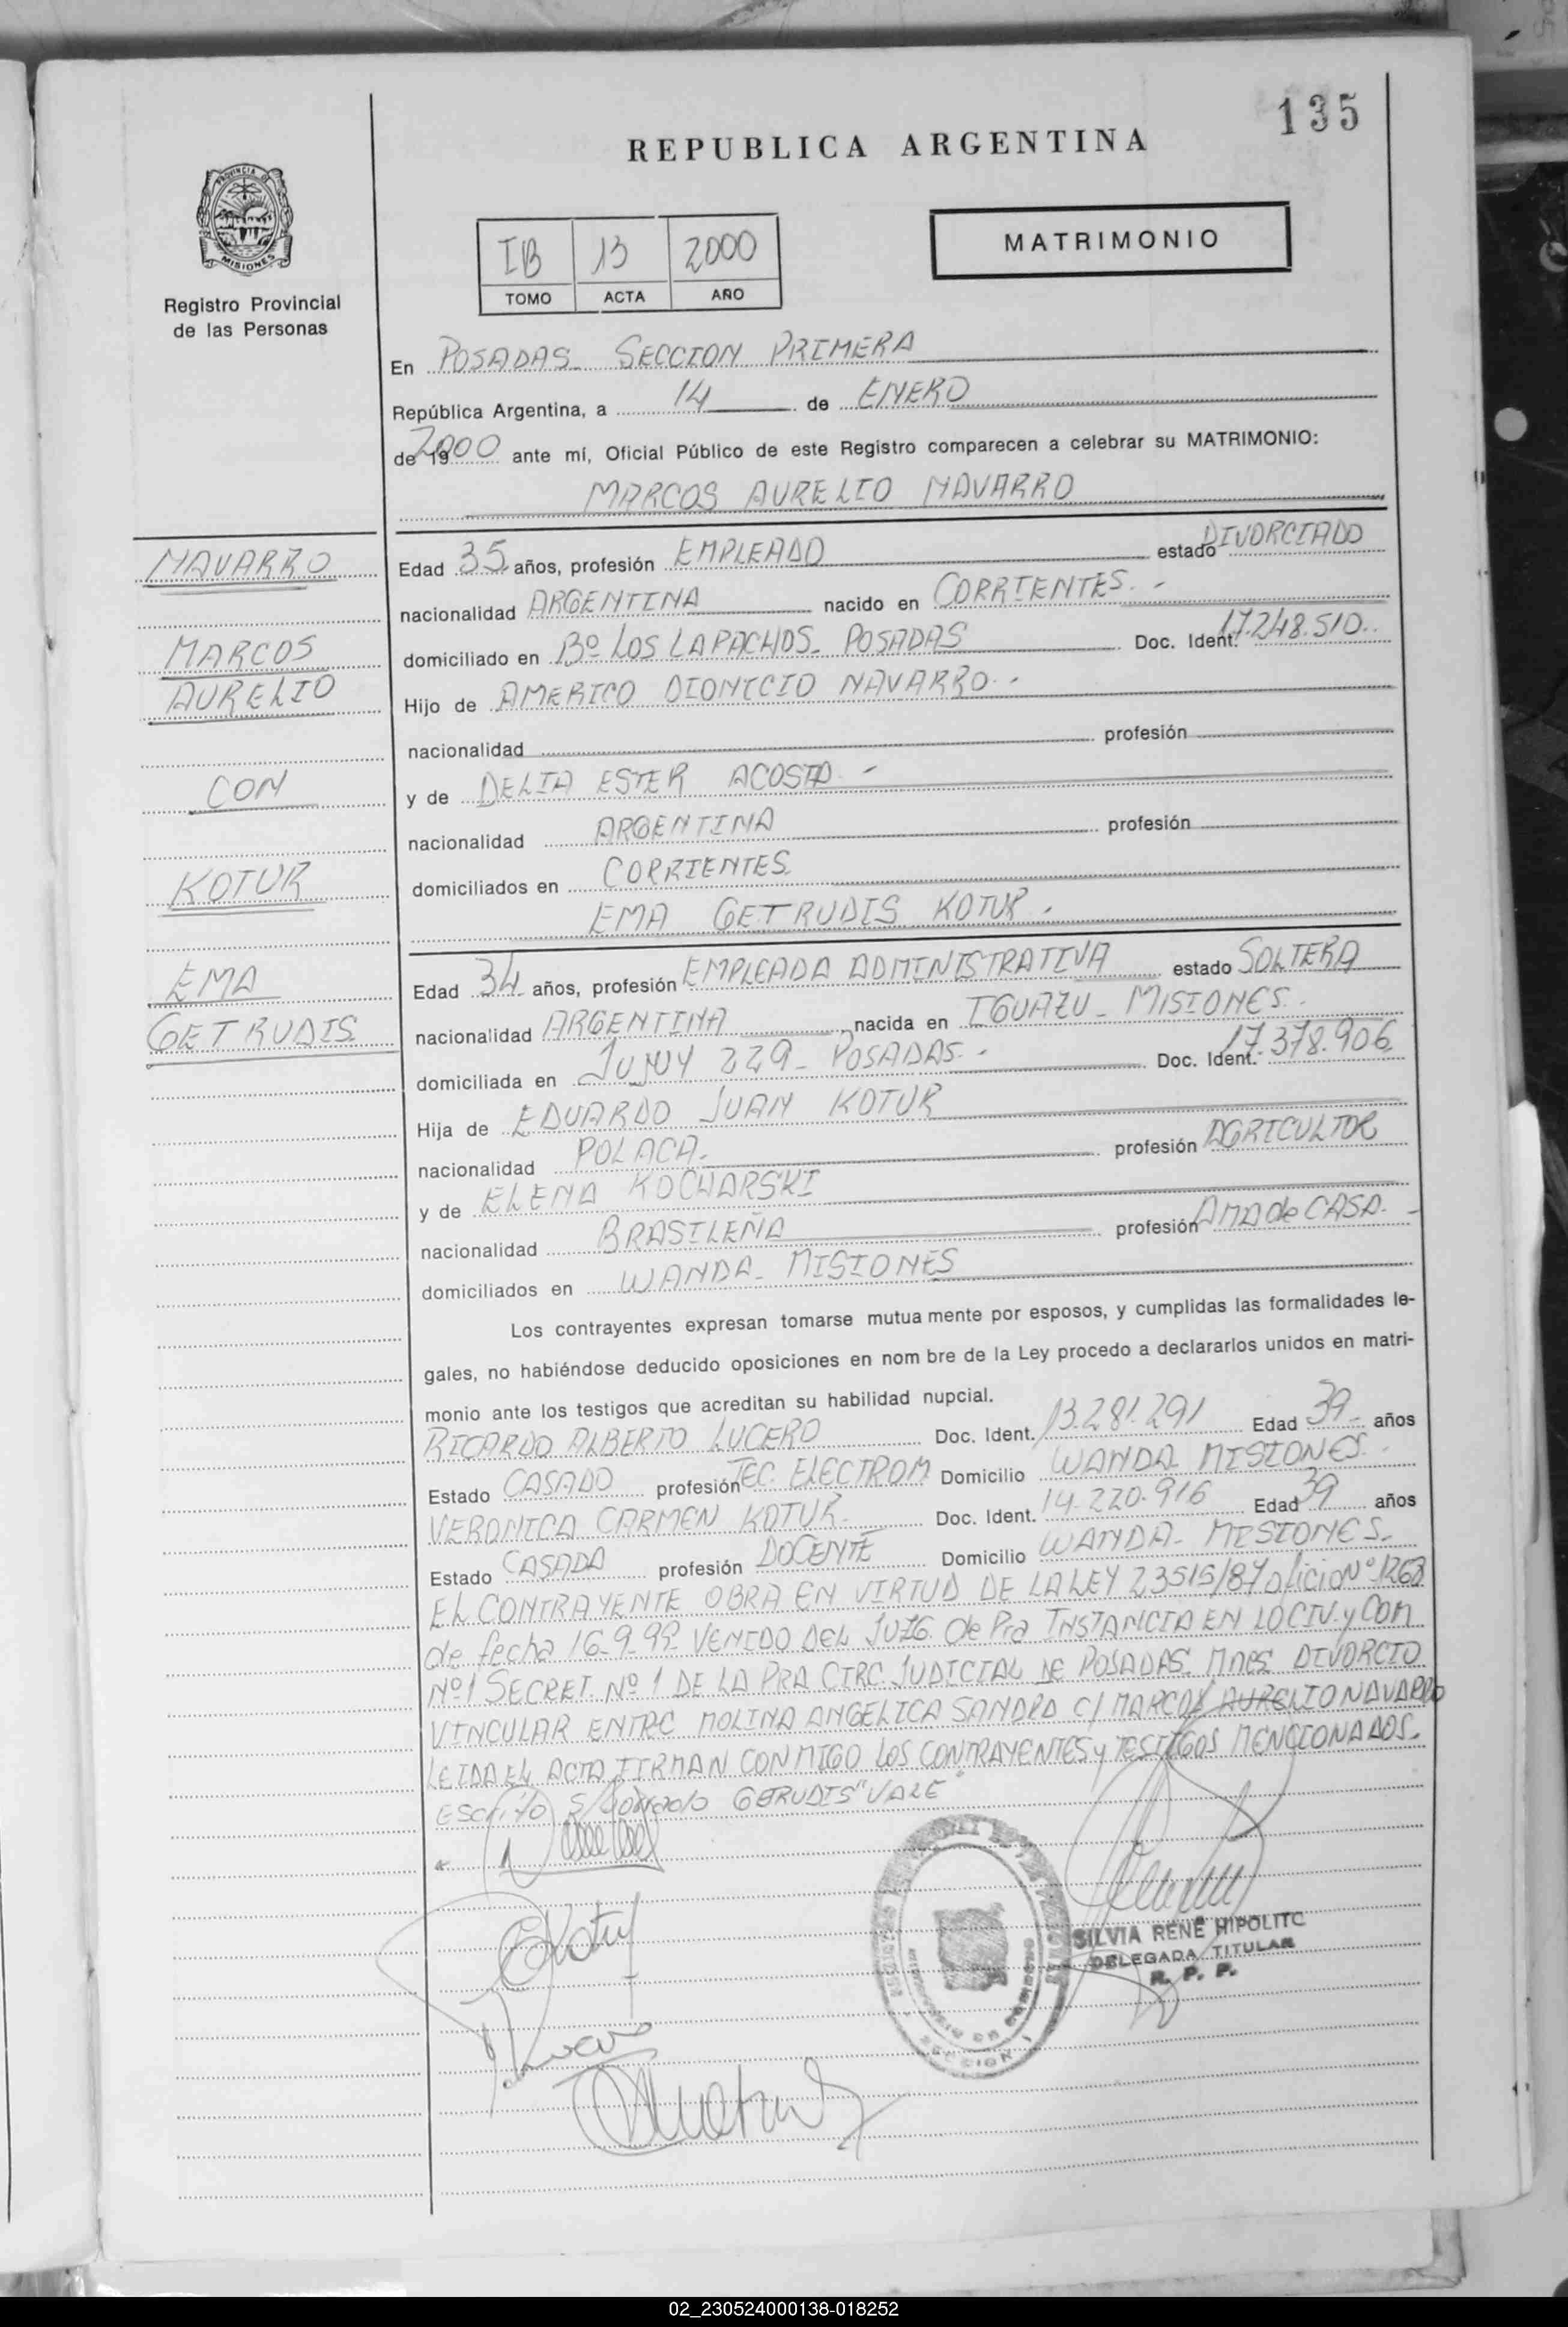 135
REPUBLICA ARGENTINA
PROVINCIA DE
MISIONES
Registro Provincial
de las Personas
IB 13 2000
TOMO ACTA AÑO
MATRIMONIO
En POSADAS SECCION PRIMERA
República Argentina, a 14 de ENERO
de 19 2000 ante mí, Oficial Público de este Registro comparecen a celebrar su MATRIMONIO:
MARCOS AURELIO NAVARRO
NAVARRO
MARCOS
AURELIO
CON
KOTUR
EMA
GETRUDIS
Edad 35 años, profesión EMPLEADO estado DIVORCIADO
nacionalidad ARGENTINA nacido en CORRIENTES. -
domiciliado en Bº LOS LAPACHOS_ POSADAS Doc. Ident. 17.248.510..
Hijo de AMERICO DIONICIO NAVARRO. -
nacionalidad profesión
y de DELIA ESTER ACOSTA. -
nacionalidad ARGENTINA profesión
domiciliados en CORRIENTES.
EMA GETRUDIS KOTUR.
Edad 34 años, profesión EMPLEADA ADMINISTRATIVA estado SOLTERA
nacionalidad ARGENTINA nacida en IGUAZU_ MISIONES.
domiciliada en JUJUY 229_ POSADAS. - Doc. Ident. 17.378.906
Hija de EDUARDO JUAN KOTUR
nacionalidad POLACA. profesión AGRICULTOR
y de ELENA KOCHARSKI
nacionalidad BRASILEÑA profesión AMA de CASA. -
domiciliados en WANDA_ MISIONES
Los contrayentes expresan tomarse mutua mente por esposos, y cumplidas las formalidades le-
gales, no habiéndose deducido oposiciones en nom bre de la Ley procedo a declararlos unidos en matri-
monio ante los testigos que acreditan su habilidad nupcial.
RICARDO ALBERTO LUCERO Doc. Ident. 13.281.291 Edad 39 años
Estado CASADO profesión TEC. ELECTROM Domicilio WANDA MISIONES.
VERONICA CARMEN KOTUR. Doc. Ident. 14.220.916 Edad 39 años
Estado CASADA profesión DOCENTE Domicilio WANDA_ MISIONES.
EL CONTRAYENTE OBRA EN VIRTUD DE LA LEY 23515/87 oficio Nº 1268
de fecha 16-9-99 VENIDO DEL JUZG. de Pra INSTANCIA EN LO CIV. y COM
Nº 1 SECRET. Nº 1 DE LA PRA CIRC. JUDICIAL DE POSADAS. Mnes DIVORCIO
VINCULAR ENTRE MOLINA ANGELICA SANDRA C/ MARCOS AURELIO NAVARRO
LEIDA EL ACTA FIRMAN CONMIGO LOS CONTRAYENTES y TESTIGOS MENCIONADOS.
Escrito S/ borrado GETRUDIS "VALE"
EKotur
SECCION 1
SILVIA RENÉ HIPOLITO
DELEGADA TITULAR
R. P. P.
02_230524000138-018252